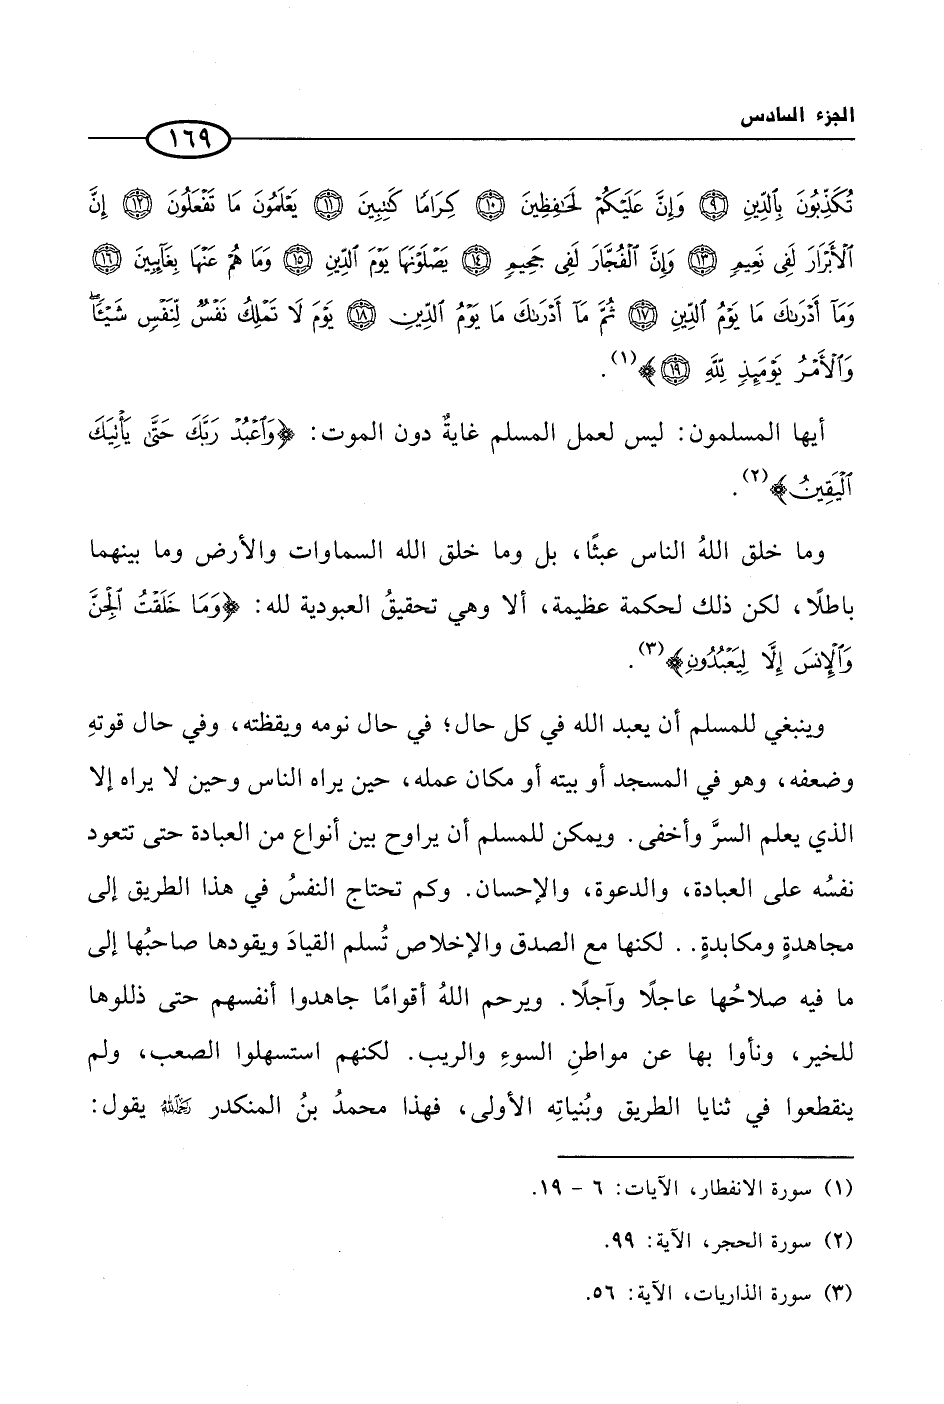 الجزء السادس
١٦٩
تُكَذِّبُونَ بِٱلدِّينِ ۝٩ وَإِنَّ عَلَيْكُمْ لَحَٰفِظِينَ ۝١٠ كِرَامًا كَٰتِبِينَ ۝١١ يَعْلَمُونَ مَا تَفْعَلُونَ ۝١٢ إِنَّ
ٱلْأَبْرَارَ لَفِى نَعِيمٍ ۝١٣ وَإِنَّ ٱلْفُجَّارَ لَفِى جَحِيمٍ ۝١٤ يَصْلَوْنَهَا يَوْمَ ٱلدِّينِ ۝١٥ وَمَا هُمْ عَنْهَا بِغَآئِبِينَ ۝١٦
وَمَآ أَدْرَىٰكَ مَا يَوْمُ ٱلدِّينِ ۝١٧ ثُمَّ مَآ أَدْرَىٰكَ مَا يَوْمُ ٱلدِّينِ ۝١٨ يَوْمَ لَا تَمْلِكُ نَفْسٌ لِّنَفْسٍ شَيْـًٔا ۖ
وَٱلْأَمْرُ يَوْمَئِذٍ لِّلَّهِ ۝١٩﴾(١).
أيها المسلمون: ليس لعمل المسلم غايةٌ دون الموت: ﴿وَٱعْبُدْ رَبَّكَ حَتَّىٰ يَأْتِيَكَ
ٱلْيَقِينُ﴾(٢).
وما خلق اللهُ الناس عبثًا، بل وما خلق الله السماوات والأرض وما بينهما
باطلًا، لكن ذلك لحكمة عظيمة، ألا وهي تحقيقُ العبودية لله: ﴿وَمَا خَلَقْتُ ٱلْجِنَّ
وَٱلْإِنسَ إِلَّا لِيَعْبُدُونِ﴾(٣).
وينبغي للمسلم أن يعبد الله في كل حال؛ في حال نومه ويقظته، وفي حال قوتهِ
وضعفه، وهو في المسجد أو بيته أو مكان عمله، حين يراه الناس وحين لا يراه إلا
الذي يعلم السرَّ وأخفى. ويمكن للمسلم أن يراوح بين أنواع من العبادة حتى تتعود
نفسُه على العبادة، والدعوة، والإحسان. وكم تحتاج النفسُ في هذا الطريق إلى
مجاهدةٍ ومكابدةٍ.. لكنها مع الصدق والإخلاص تُسلم القيادَ ويقودها صاحبُها إلى
ما فيه صلاحُها عاجلًا وآجلًا. ويرحم اللهُ أقوامًا جاهدوا أنفسهم حتى ذللوها
للخير، ونأوا بها عن مواطنِ السوءِ والريب. لكنهم استسهلوا الصعب، ولم
ينقطعوا في ثنايا الطريق وبُنياتِه الأولى، فهذا محمدُ بنُ المنكدر رَحِمَهُ اللهُ يقول:
(١) سورة الانفطار، الآيات: ٦ - ١٩.
(٢) سورة الحجر، الآية: ٩٩.
(٣) سورة الذاريات، الآية: ٥٦.